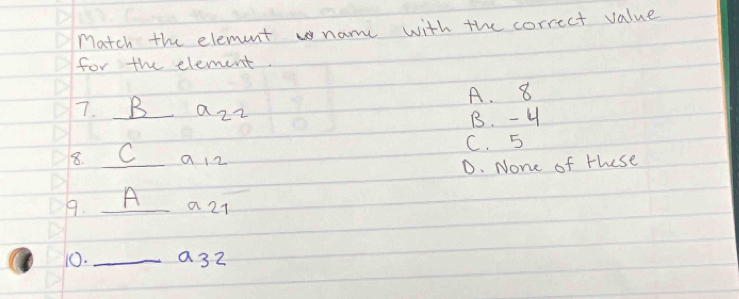 Match the element name with the correct value
for the element.
7. B a22
8. C a12
9. A a21
10. ___ a32
A. 8
B. -4
C. 5
D. None of these